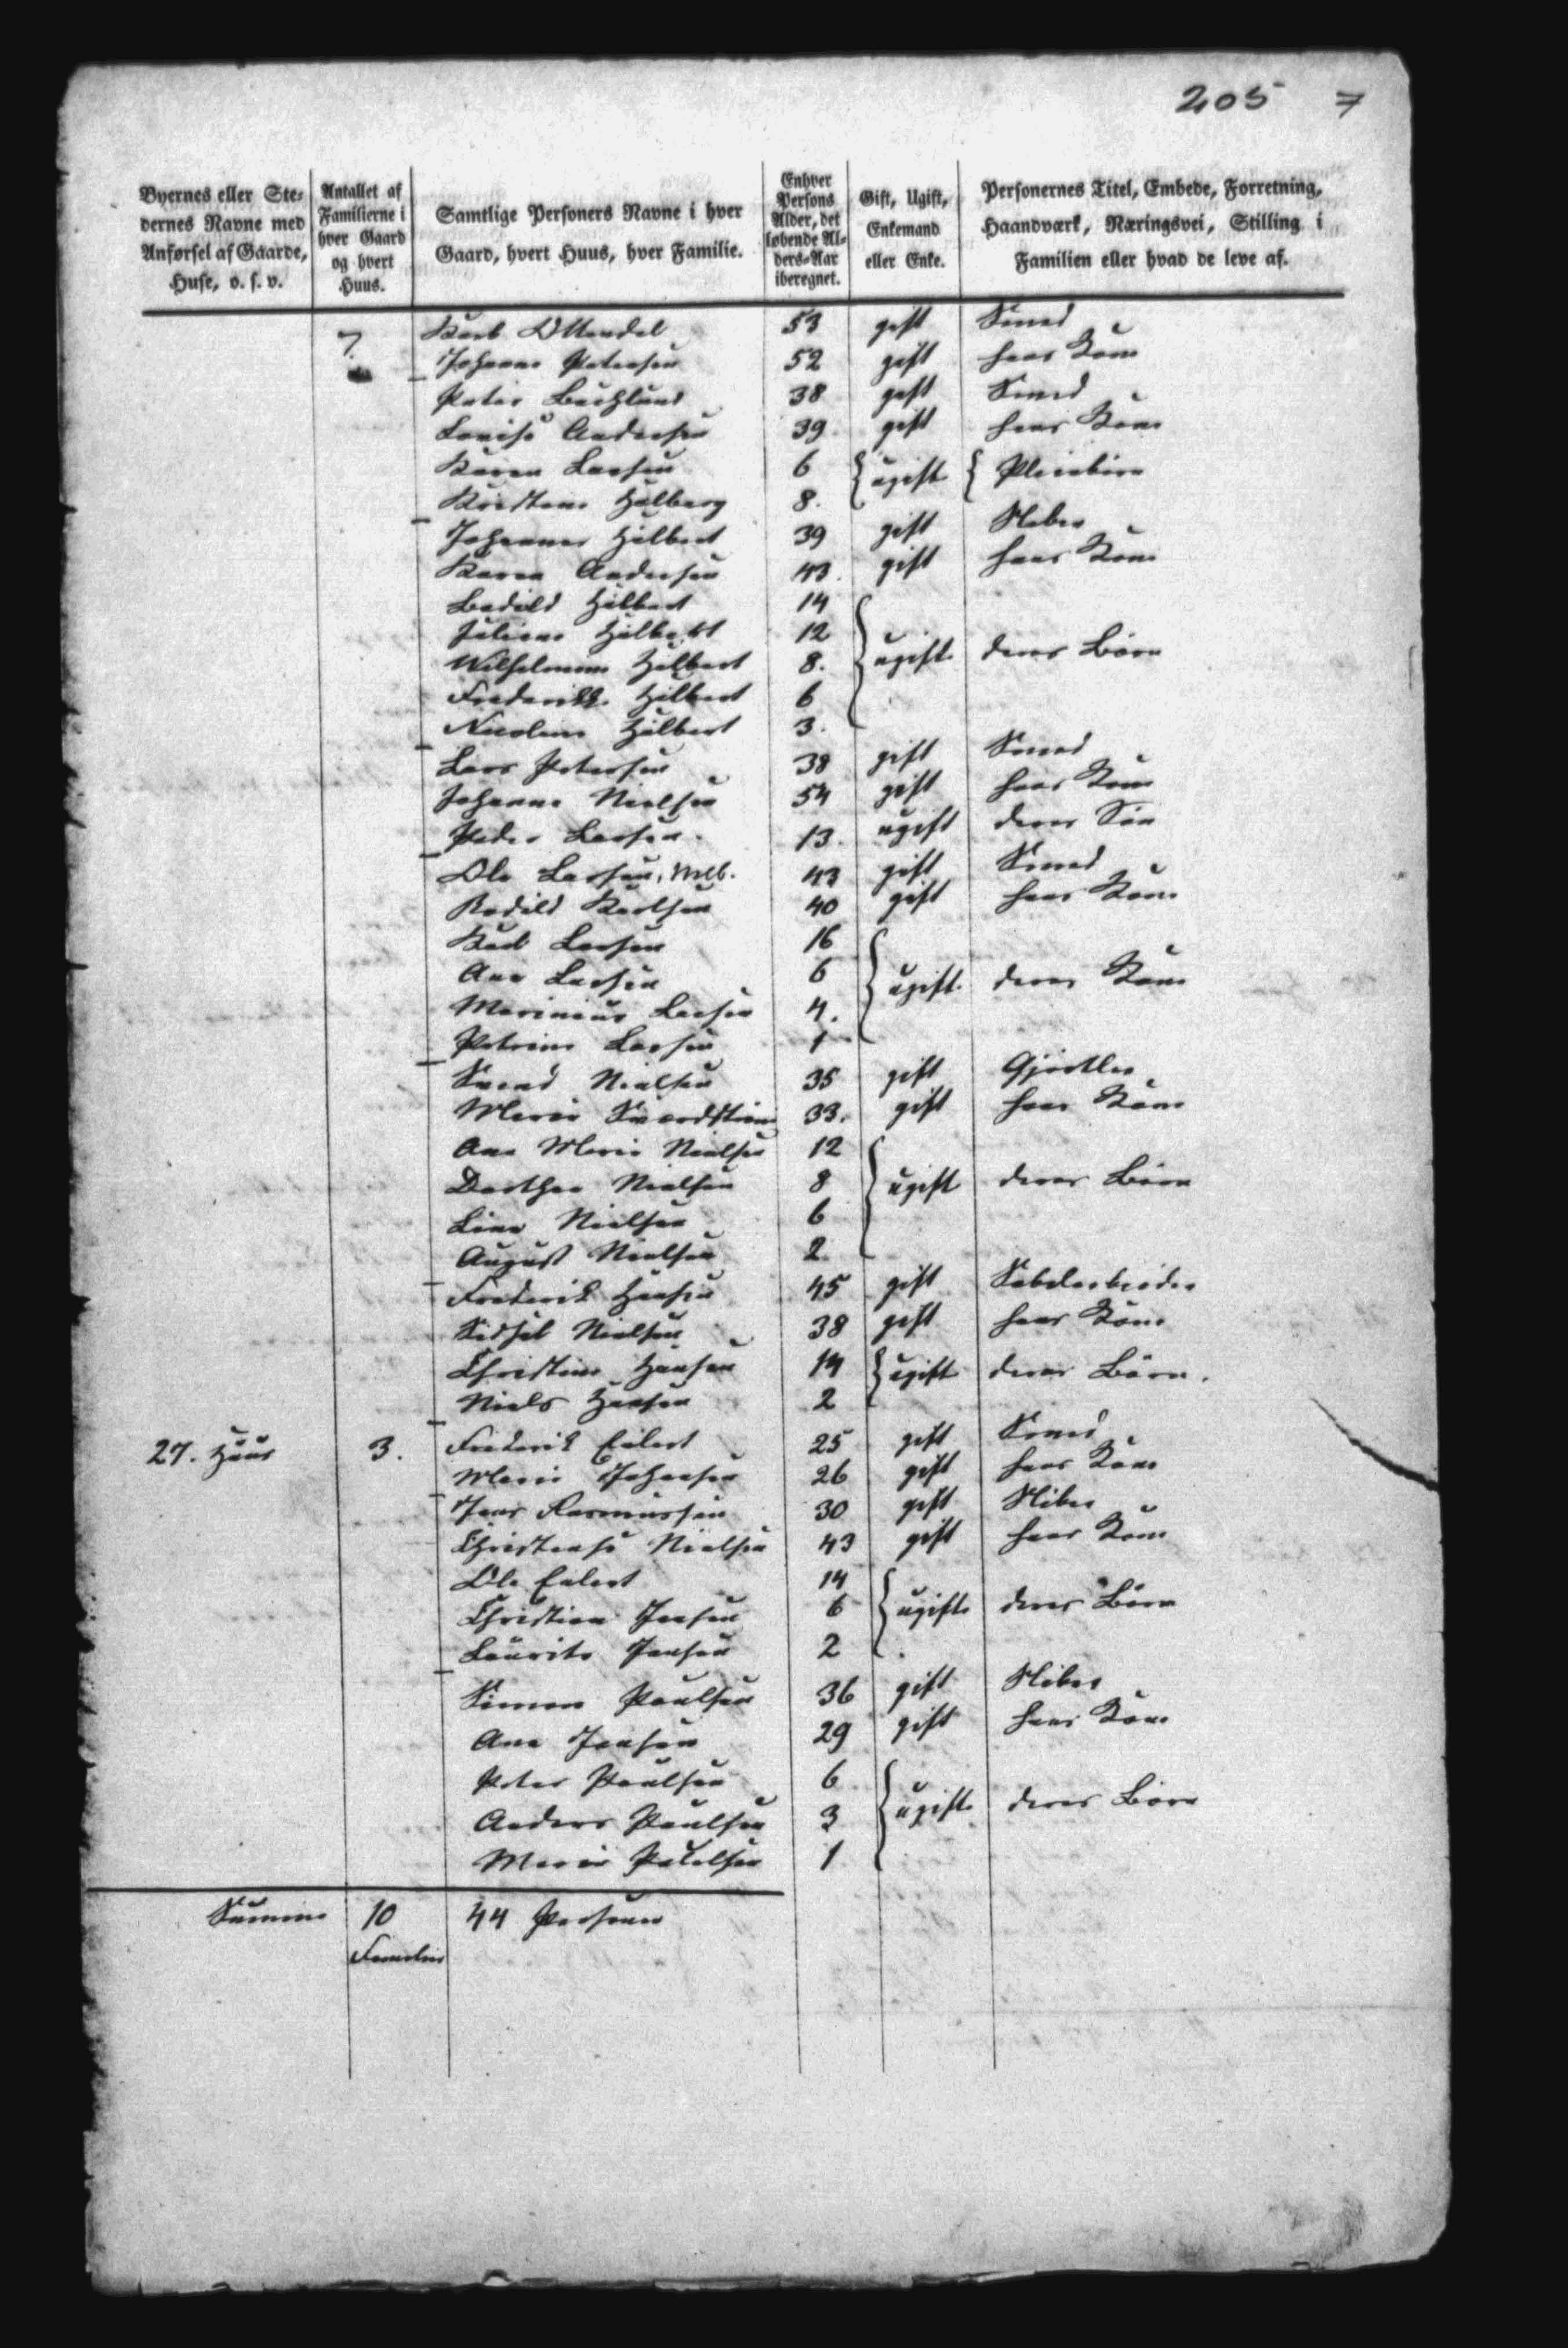 205 7
Byernes eller Ste-
dernes Navne med
Anførsel af Gaarde,
Huse, o. s. v.
Antallet af
Familierne i
hver Gaard
og hvert
Huus.
Samtlige Personers Navne i hver
Gaard, hvert Huus, hver Familie.
Enhver
Persons
Alder, det
løbende Al-
ders-Aar
iberegnet.
Gift, Ugift,
Enkemand
eller Enke.
Personernes Titel, Embede, Forretning,
Haandværk, Næringsvei, Stilling i
Familien eller hvad de leve af.
7 Karl 53 gift Smed
Johanne Petersen 52 gift hans Kone
Peter Berglund 38 gift Smed
Lovise Andersen 39 gift hans Kone
Karen Larsen 6 ugift Pleiebørn
Kirstine Hilberg 8.
Johannes Hilbert 39 gift Sliber
Karen Andersen 43. gift hans Kone
Bodild Hilbert 14
Juliane Hilbert 12
Wilhelmine Hilbert 8. ugift deres Børn
Frederikke Hilbert 6
Nicoline Hilbert 3.
Lars Petersen 38 gift Smed
Johanne Nielsen 54 gift hans Kone
Peder Larsen 13. ugift deres Søn
Ole Larsen, 43 gift Smed
Bodild Karlsen 40 gift hans Kone
Karl Larsen 16
Ane Larsen 6 ugift deres
Marinus Larsen 4.
Petrine Larsen 1
Svend Nielsen 35 gift Gjørtler
Marie 33. gift hans Kone
Ane Marie Nielsen 12
Dorthea Nielsen 8 ugift deres Børn
Line Nielsen 6
August Nielsen 2
Frederik Hansen 45 gift
Sidsel Nielsen 38 gift hans Kone
Christine Hansen 14 ugift deres Børn.
Niels Hansen 2
27. Huus 3. Frederik Eilert 25 gift Smed
Marie Johansen 26 gift hans Kone
Jens Rasmussen 30 gift Sliber
Christense Nielsen 43 gift hans Kone
Ole Eilert 14
Christian Jensen 6 ugift deres Børn
Laurits Jensen 2
Simon Poulsen 36 gift Sliber
Ane Jensen 29 gift hans Kone
Peter Poulsen 6
Anders Poulsen 3 ugift deres Børn
Marie Poulsen 1
Summa 10 44 Personer
Familier